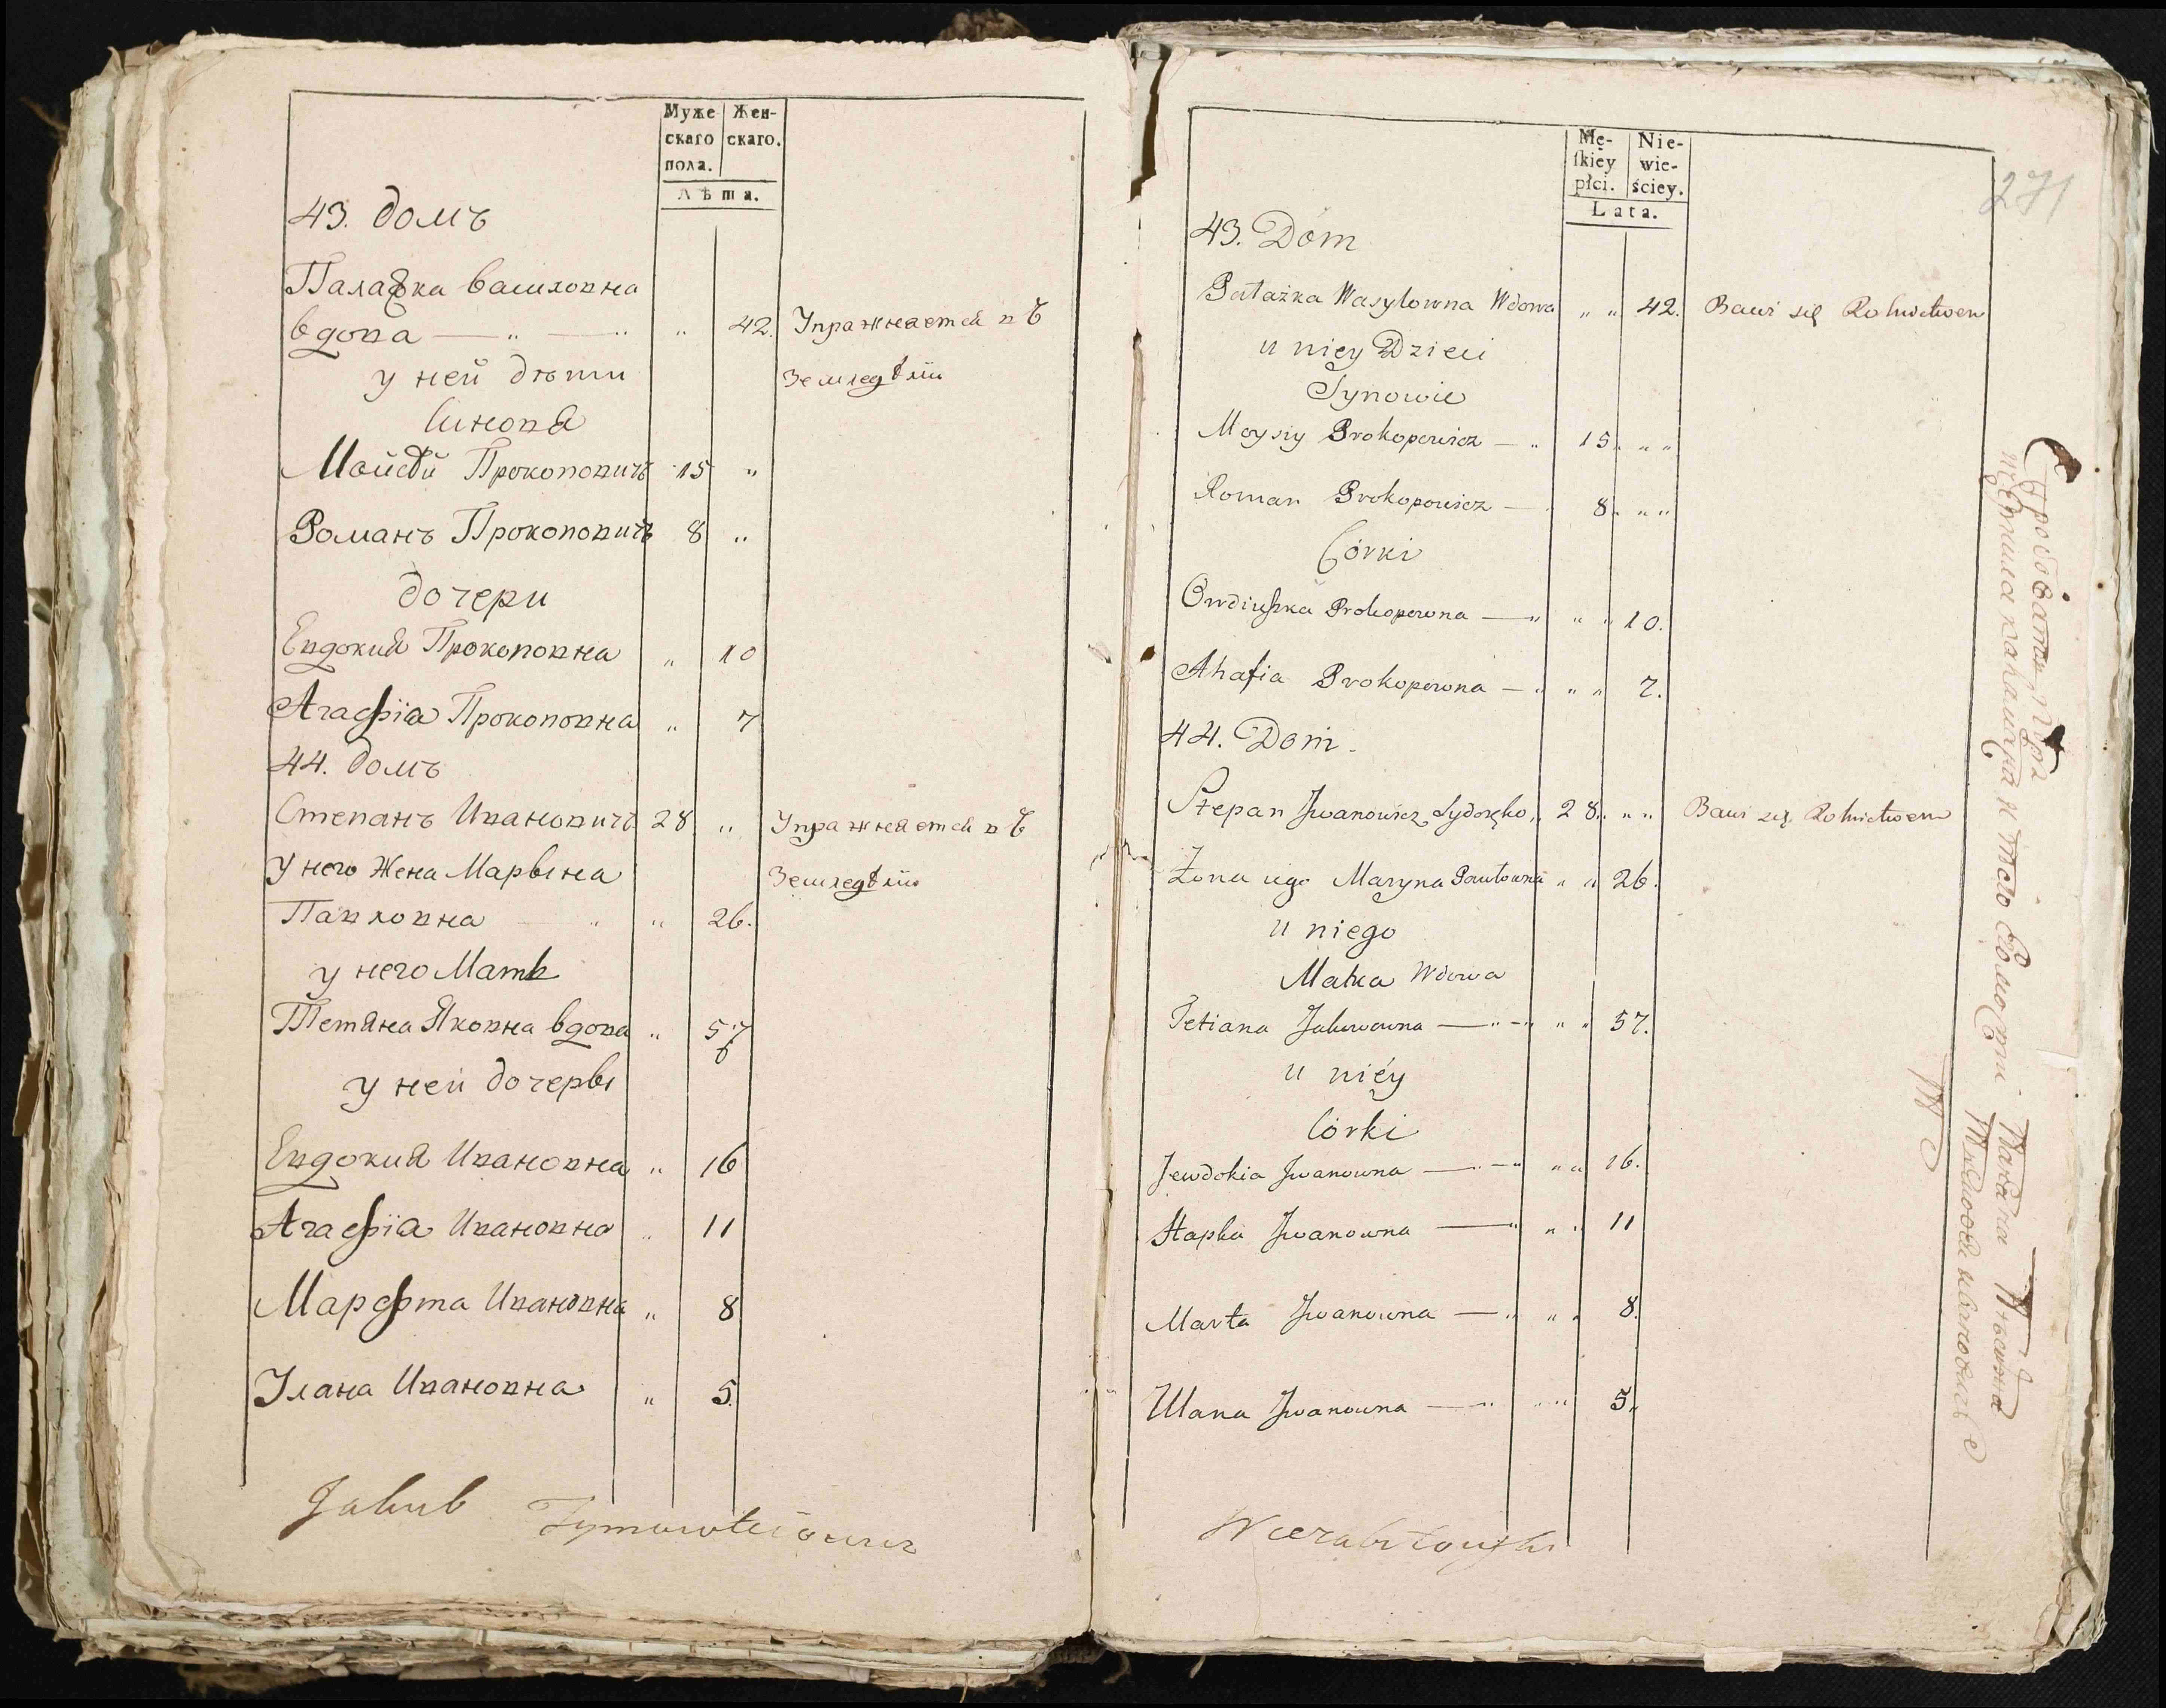 Муже Жен-
скаго скаго.
пола.
Лѣта.
43. домъ
Палажка Василовна
вдова — „ — „ „ 42. Упражняется въ
у ней дѣти Земледѣліи
Синовя
Мойсѣй Прокоповичъ 15 „
Романъ Прокоповичъ 8 „
дочери
Евдокия Прокоповна „ 10
Агафіа Прокоповна „ 7
44. домъ
Степанъ Ивановичъ 28 „ Упражняется въ
У него Жена Марына Земледѣліи
Павловна „ „ 26.
у него Мать
Тетяна Яковна вдова „ 57
у ней дочеры
Евдокия Ивановна „ 16
Агафіа Ивановна „ 11
Марфта Ивановна „ 8
Улана Ивановна „ 5.
Jakub
Mę- Nie-
skiey wie-
płci. ściey.
Lata.
271
43. Dom
Pałażka Wasylowna Wdowa „ „ 42. Bawi się Rolnictwem
u niey Dzieci
Synowie
Moysiy Prokopowicz — „ 15. „ „
Roman Prokopowicz — 8. „ „
Córki
Owdiuszka Prokopowna — „ „ „ 10.
Ahafia Prokopowna — „ „ „ 7.
44. Dom.
Stepan Jwanowicz Sydoręko „ 28. „ „ Bawi się Rolnictwem
Żona iego Maryna Pawłowna „ „ 26.
u niego
Matka Wdowa
Tetiana Jakowowna — „ — „ „ „ 57.
u niéy
Córki
Jewdokia Jwanowna — „ — „ „ „ 16.
Hapka Jwanowna — „ „ „ 11
Marta Jwanowna — „ „ „ 8.
Ulana Jwanowna — „ „ „ 5.